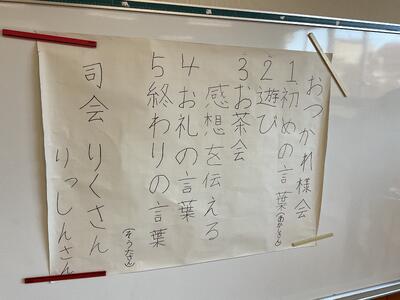 おつかれ様会
1初めの言葉(あかりさん)
2遊び
3お茶会
感想を伝える
4お礼の言葉
5終わりの言葉
(そうたさん)
司会 りくさん
りっしんさん